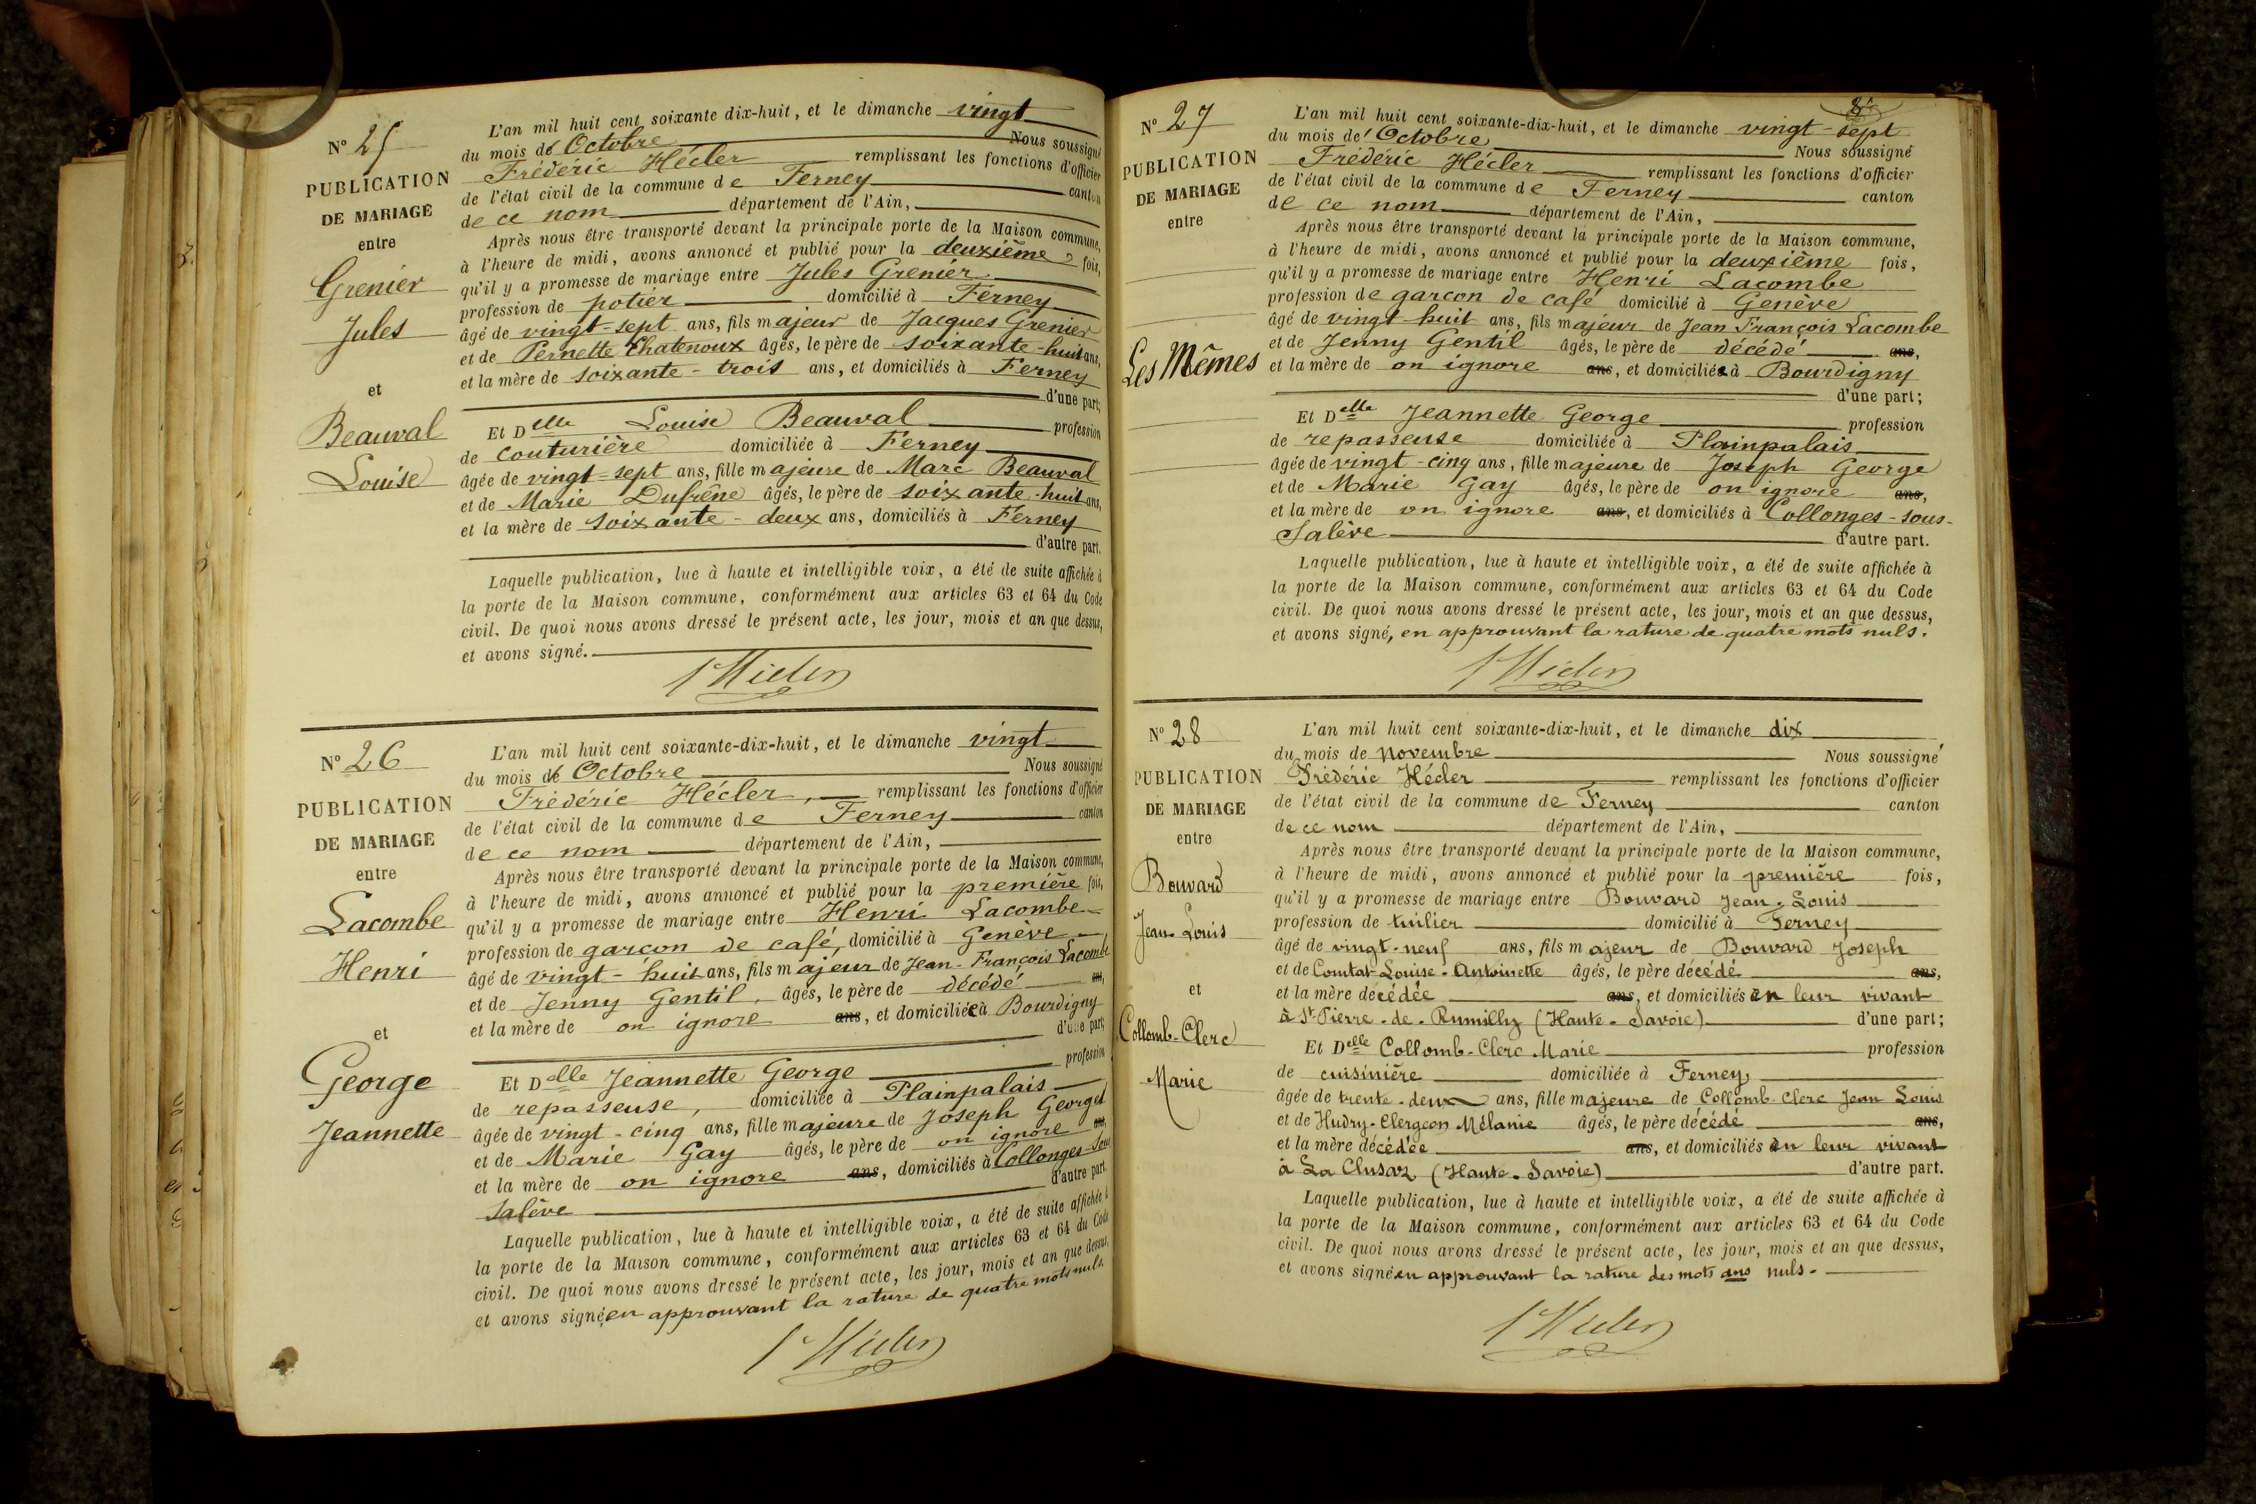 N° 25
PUBLICATION
DE MARIAGE
entre
Grenier
Jules
et
Beauval
Louise
L'an mil huit cent soixante dix-huit, et le dimanche vingt
du mois de Octobre Nous soussigné
Frédéric Hécler remplissant les fonctions d'officier
de l'état civil de la commune de Ferney canton
de ce nom département de l'Ain,
Après nous être transporté devant la principale porte de la Maison commune,
à l'heure de midi, avons annoncé et publié pour la deuxième fois,
qu'il y a promesse de mariage entre Jules Grenier
profession de potier domicilié à Ferney
âgé de vingt-sept ans, fils majeur de Jacques Grenier
et de Pernette Chatenoux âgés, le père de soixante-huit ans,
et la mère de soixante-trois ans, et domiciliés à Ferney
d'une part;
Et Delle Louise Beauval profession
de couturière domiciliée à Ferney
âgée de vingt-sept ans, fille majeure de Marc Beauval
et de Marie Dufrêne âgés, le père de soixante-huit ans,
et la mère de soixante-deux ans, domiciliés à Ferney
d'autre part.
Laquelle publication, lue à haute et intelligible voix, a été de suite affichée à
la porte de la Maison commune, conformément aux articles 63 et 64 du Code
civil. De quoi nous avons dressé le présent acte, les jour, mois et an que dessus,
et avons signé.
N° 26
PUBLICATION
DE MARIAGE
entre
Lacombe
Henri
et
George
Jeannette
L'an mil huit cent soixante-dix-huit, et le dimanche vingt
du mois de Octobre Nous soussigné
Frédéric Hécler, remplissant les fonctions d'officier
de l'état civil de la commune de Ferney canton
de ce nom département de l'Ain,
Après nous être transporté devant la principale porte de la Maison commune,
à l'heure de midi, avons annoncé et publié pour la première fois,
qu'il y a promesse de mariage entre Henri Lacombe
profession de garçon de café, domicilié à Genève
âgé de vingt-huit ans, fils majeur de Jean-François Lacombe
et de Jenny Gentil, âgés, le père de décédé ans,
et la mère de on ignore ans, et domiciliée à Bourdigny
d'une part;
Et Delle Jeannette George profession
de repasseuse, domiciliée à Plainpalais
âgée de vingt-cinq ans, fille majeure de Joseph George
et de Marie Gay âgés, le père de on ignore ans,
et la mère de on ignore ans, domiciliés à Collonges-Sous
Salève d'autre part.
Laquelle publication, lue à haute et intelligible voix, a été de suite affichée à
la porte de la Maison commune, conformément aux articles 63 et 64 du Code
civil. De quoi nous avons dressé le présent acte, les jour, mois et an que dessus,
et avons signé, en approuvant la rature de quatre mots nuls.
N° 27
PUBLICATION
DE MARIAGE
entre
Les Mêmes
L'an mil huit cent soixante-dix-huit, et le dimanche vingt-sept
du mois de Octobre Nous soussigné
Frédéric Hécler remplissant les fonctions d'officier
de l'état civil de la commune de Ferney canton
de ce nom département de l'Ain,
Après nous être transporté devant la principale porte de la Maison commune,
à l'heure de midi, avons annoncé et publié pour la deuxième fois,
qu'il y a promesse de mariage entre Henri Lacombe
profession de garçon de café domicilié à Genève
âgé de vingt-huit ans, fils majeur de Jean François Lacombe
et de Jenny Gentil âgés, le père de décédé ans,
et la mère de on ignore ans, et domiciliée à Bourdigny
d'une part;
Et Delle Jeannette George profession
de repasseuse domiciliée à Plainpalais
âgée de vingt-cinq ans, fille majeure de Joseph George
et de Marie Gay âgés, le père de on ignore ans,
et la mère de on ignore ans, et domiciliés à Collonges-sous-
Salève d'autre part.
Laquelle publication, lue à haute et intelligible voix, a été de suite affichée à
la porte de la Maison commune, conformément aux articles 63 et 64 du Code
civil. De quoi nous avons dressé le présent acte, les jour, mois et an que dessus,
et avons signé, en approuvant la rature de quatre mots nuls.
N° 28
PUBLICATION
DE MARIAGE
entre
Bouvard
Jean-Louis
et
Collomb-Clerc
Marie
L'an mil huit cent soixante-dix-huit, et le dimanche dix
du mois de Novembre Nous soussigné
Frédéric Hécler remplissant les fonctions d'officier
de l'état civil de la commune de Ferney canton
de ce nom département de l'Ain,
Après nous être transporté devant la principale porte de la Maison commune,
à l'heure de midi, avons annoncé et publié pour la première fois,
qu'il y a promesse de mariage entre Bouvard Jean-Louis
profession de tuilier domicilié à Ferney
âgé de vingt-neuf ans, fils majeur de Bouvard Joseph
et de Comtat-Louise-Antoinette âgés, le père décédé ans,
et la mère décédée ans, et domiciliés en leur vivant
à St Pierre-de-Rumilly (Haute-Savoie) d'une part;
Et Delle Collomb-Clerc Marie profession
de cuisinière domiciliée à Ferney
âgée de trente-deux ans, fille majeure de Collomb-Clerc Jean Louis
et de Hudry-Clergeon Mélanie âgés, le père décédé ans,
et la mère décédée ans, et domiciliés en leur vivant
à La Clusaz (Haute-Savoie) d'autre part.
Laquelle publication, lue à haute et intelligible voix, a été de suite affichée à
la porte de la Maison commune, conformément aux articles 63 et 64 du Code
civil. De quoi nous avons dressé le présent acte, les jour, mois et an que dessus,
et avons signé en approuvant la rature des mots ans nuls.